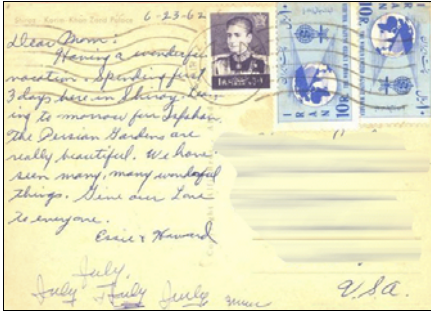 6-23-62
Shiraz - Karim Khan Zand Palace
Dear Mom:
Having a wonderful
vacation. Spending first
3 days here in Shiraz. Leav-
ing to morrow for Isfahan.
The Persian Gardens are
really beautiful. We have
seen many, many wonderful
things. Give our Love
to everyone.
Essie & Howard
July.
July July July
U.S.A.
10R.
I RAN
10R.
I RAN